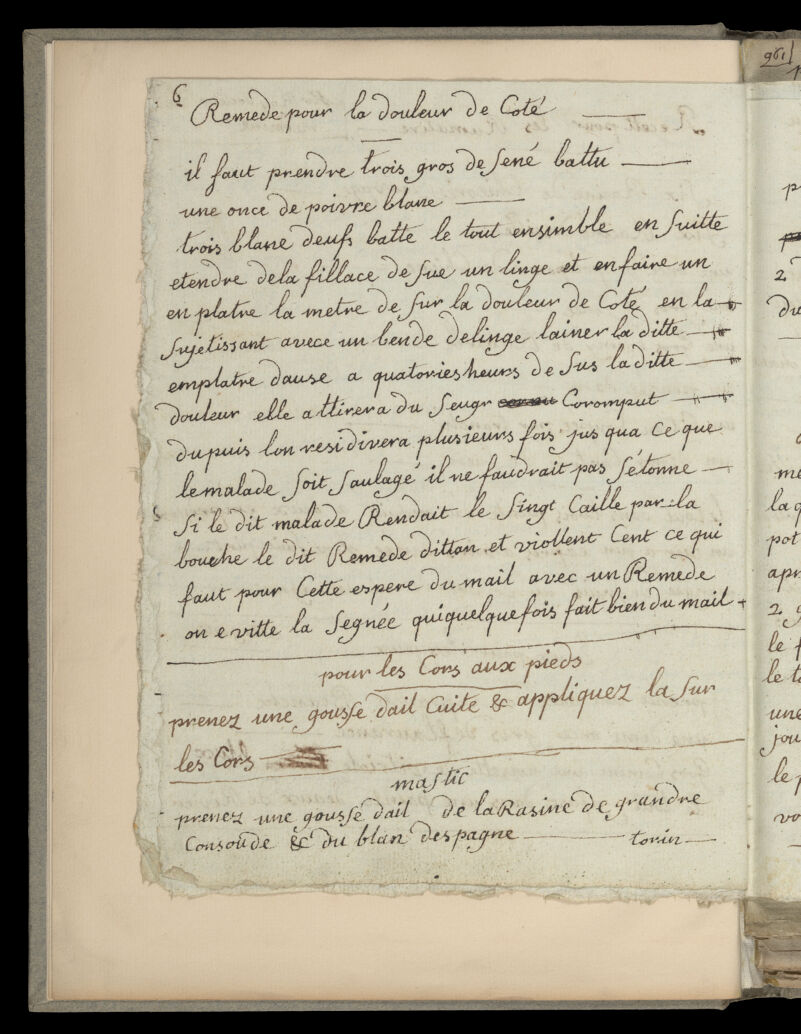 6
Remede pour la douleur de Coté
il faut prendre trois gros de sené battu
une once de poivre blanc
trois blanc deufs batte le tout ensimble en suitte
etendre dela fillace de sue un linge et en faire un
en platre la metre de sur la douleur de Coté en la
sujetissant avece un bende delinge lainer la ditte
emplatre dause a quatories heurs de sus la ditte
douleur elle attirera du seugr Coromput
du puis lon residivera plusieurs fois jus qua ce que
le malade soit saulagé il ne faudrait pas sétonne
si le dit malade Rendait le singt Caille par la
bouche le dit Remede dittan et viollent Cent ce qui
faut pour Cette espere du mail avec un Remede
on evitte la segnée qui quelque fois fait bien du mail
pour les Cors aux pieds
prenez une gousse dail Cuite & appliquez la sur
les Cors
mastic
prenez une gousse dail de la Rasine de grandre
Consoude & du blan despagne
961
2
du
me
la q
pot
apr
2 g
le f
le t
une
jou
le p
vo